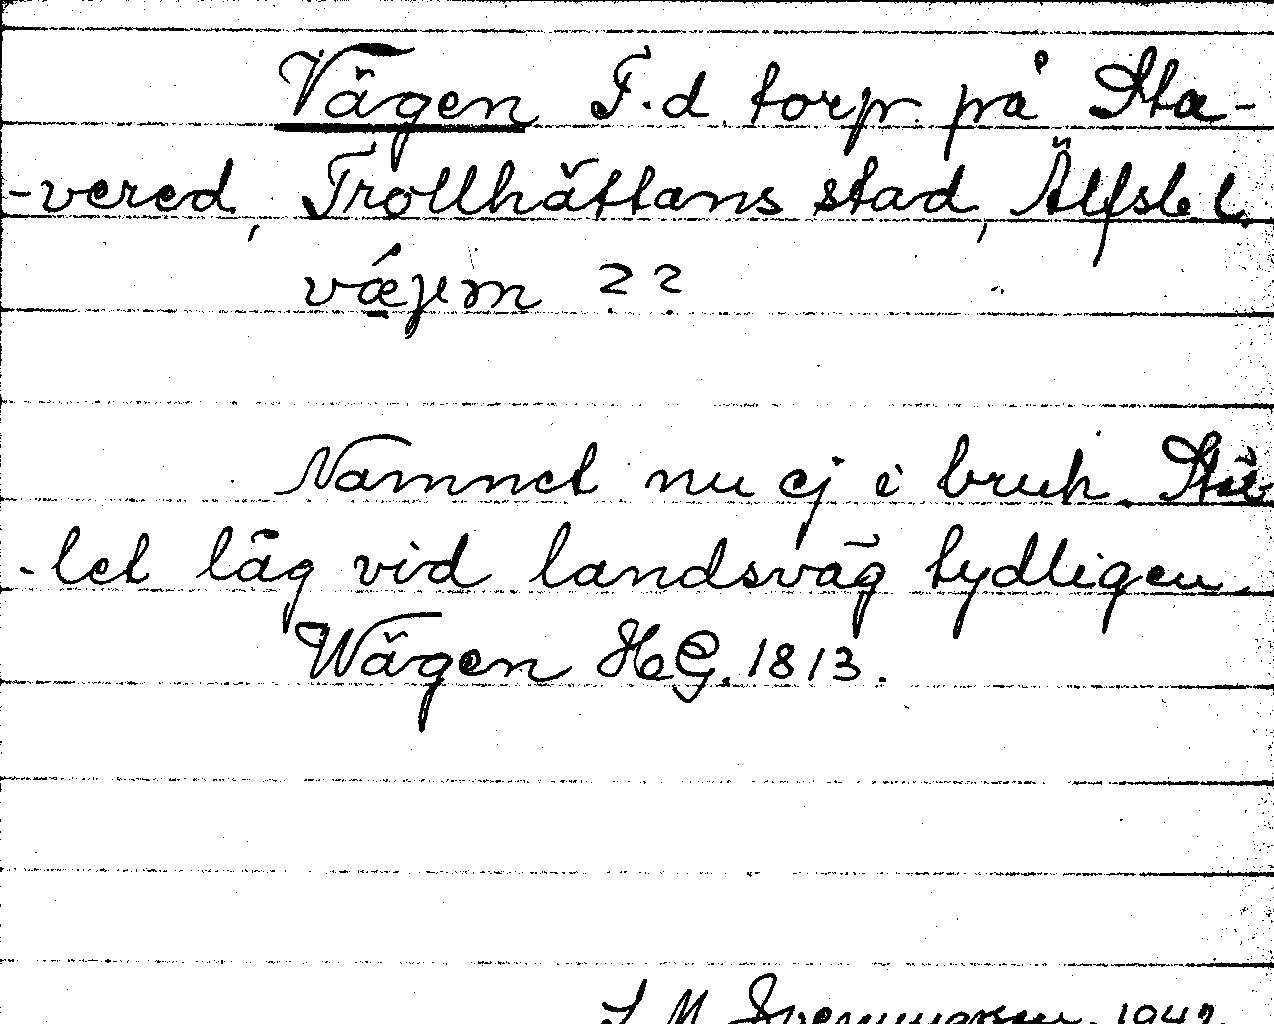 Vägen F.d. torp på Sta-
-vered, Trollhättans stad, Älfsb. l.
vǽjɛn 2 2
Namnet nu ej i bruk. Stäl-
-let låg vid landsväg tydligen.
Wägen HG. 1813.
1942.